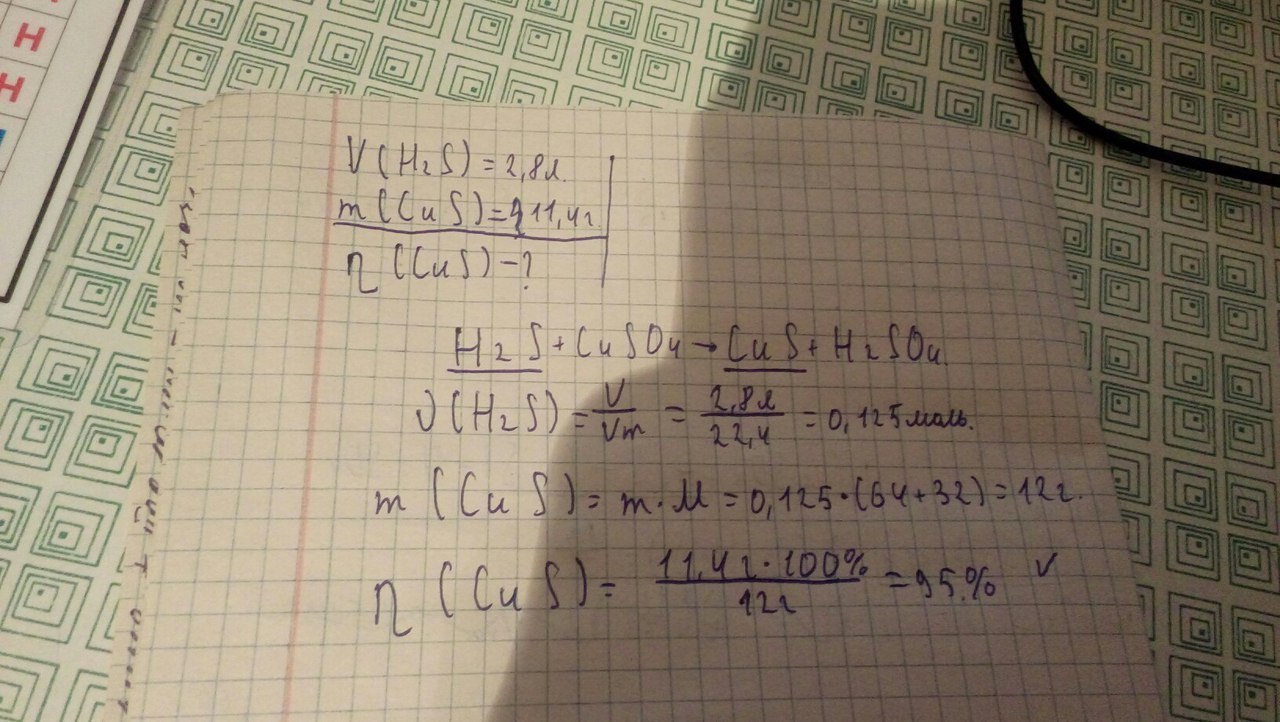 Н
Н
V(H2S)=2,8л.
m(CuS)=11,4г
η(CuS)-?
H2S+CuSO4→CuS+H2SO4.
ν(H2S)=V/Vm=2,8л/22,4=0,125моль.
m(CuS)=m·M=0,125·(64+32)=12г.
η(CuS)=11,4г·100%/12г=95% v